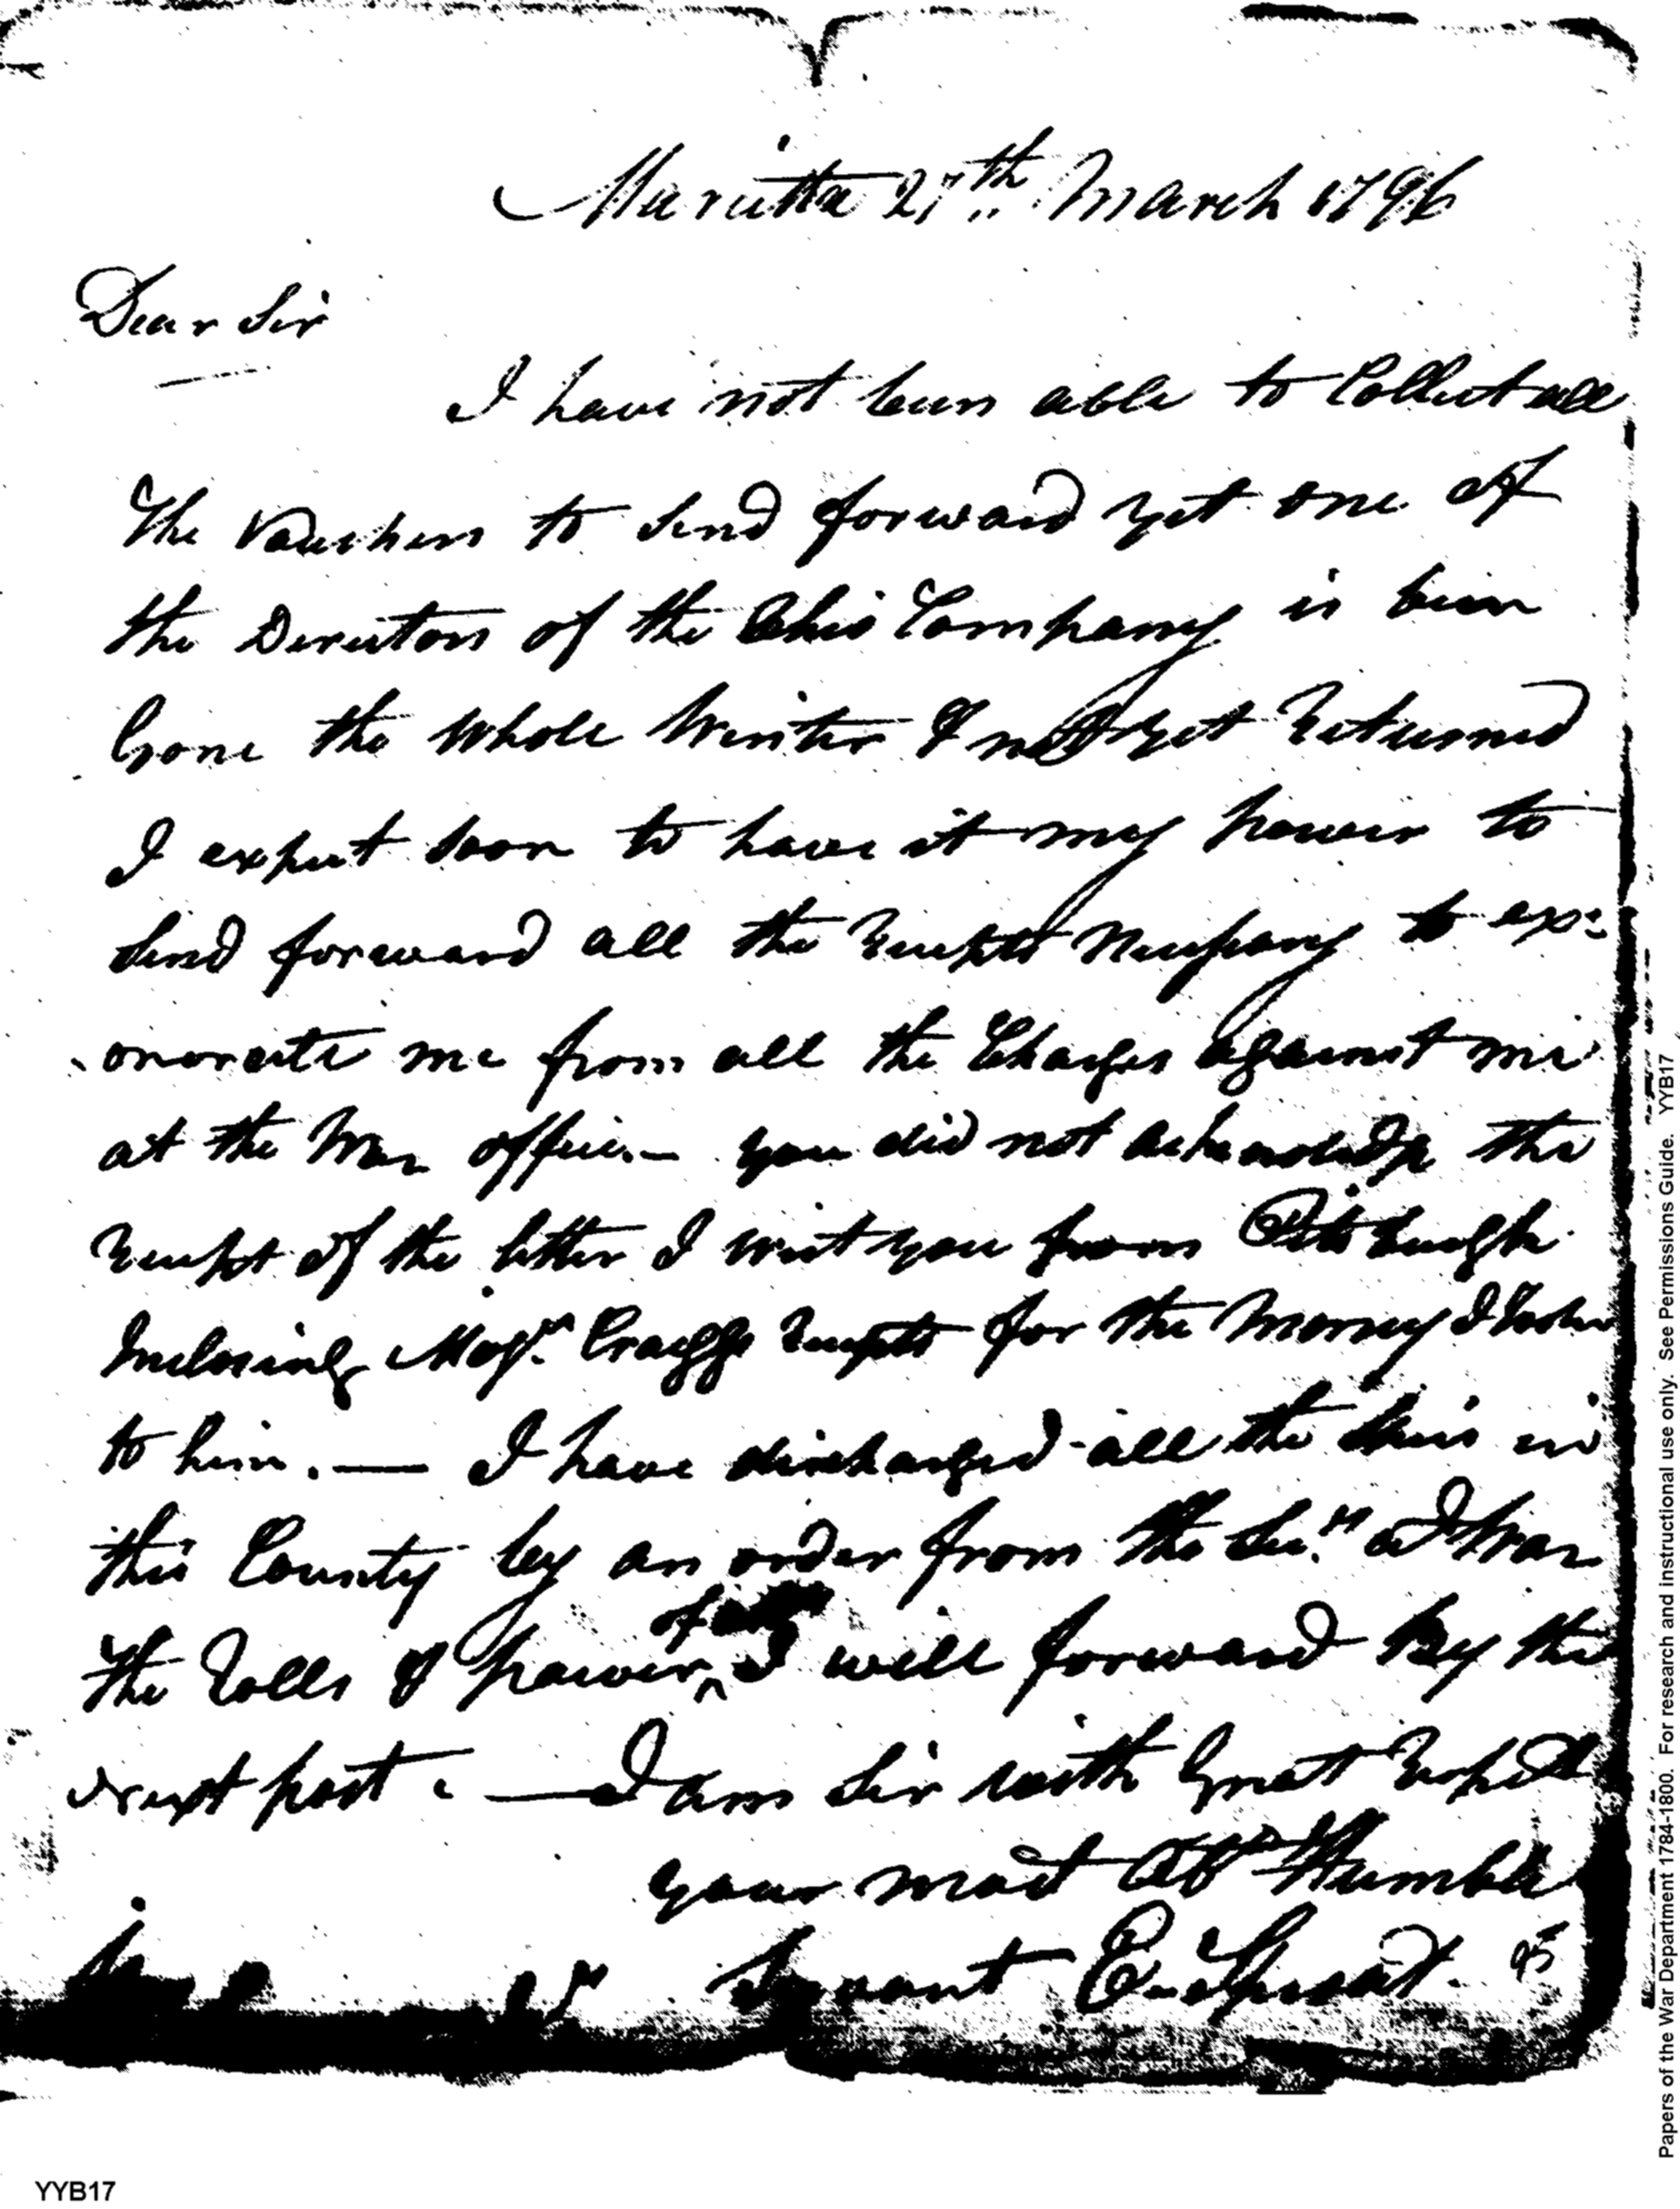 Marietta 27th March 1796
Dear Sir
I have not been able to Collect all
The Vouchers to Send forward yet one of
the Directors of the Ohio Company is been
Gone the Whole Winter & not yet Returned
I expect soon to have it my power to
Send forward all the Receipts Necessary to ex-
onorate me from all the Charges against me
at the War office.— you did not acknowledge the
Receipt of the letter I writ you from Pittsburgh
Inclosing Majr. Craiggs Receipts for the Money I
to him. — I have discharged all the in
this County by an order from the Secy. of War
The Rolls & power of I will forward By the
next post. — I am Sir with Great Respect
your most Obt Humble
Servant E. Sproat.
YYB17
Papers of the War Department 1784-1800. For research and instructional use only. See Permissions Guide. YYB17